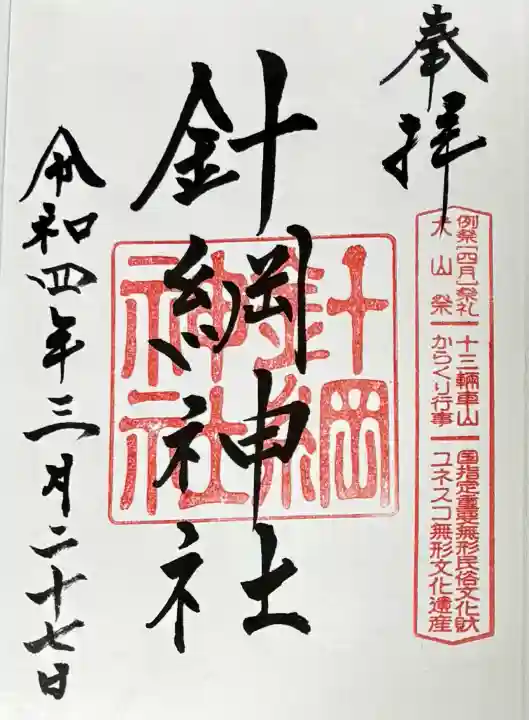 奉拝
例祭[四月]祭礼
犬山祭
十三輌車山
からくり行事
国指定重要無形民俗文化財
ユネスコ無形文化遺産
針綱神社
針綱
神社
令和四年三月二十七日